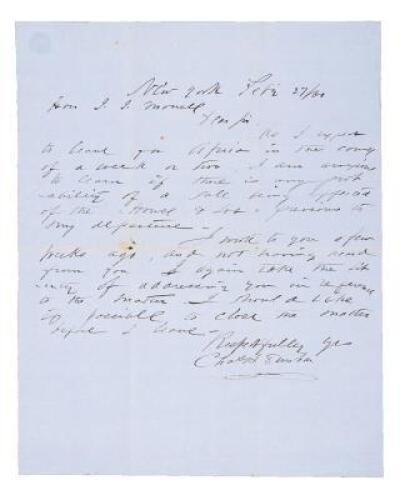 New York Feb 27/60
Hon J. J. Monell
Dear Sir
As I expect
to leave for Africa in the course
of a week or two I am anxious
to learn if there is any prob
ability of a sale being effected
of the House & Lot previous to
my departure -
I wrote to you a few
weeks ago, and not having heard
from you I again take the lib
erty of addressing you in reference
to the matter I should like
if possible to close the matter
before I leave -
Respectfully Yrs